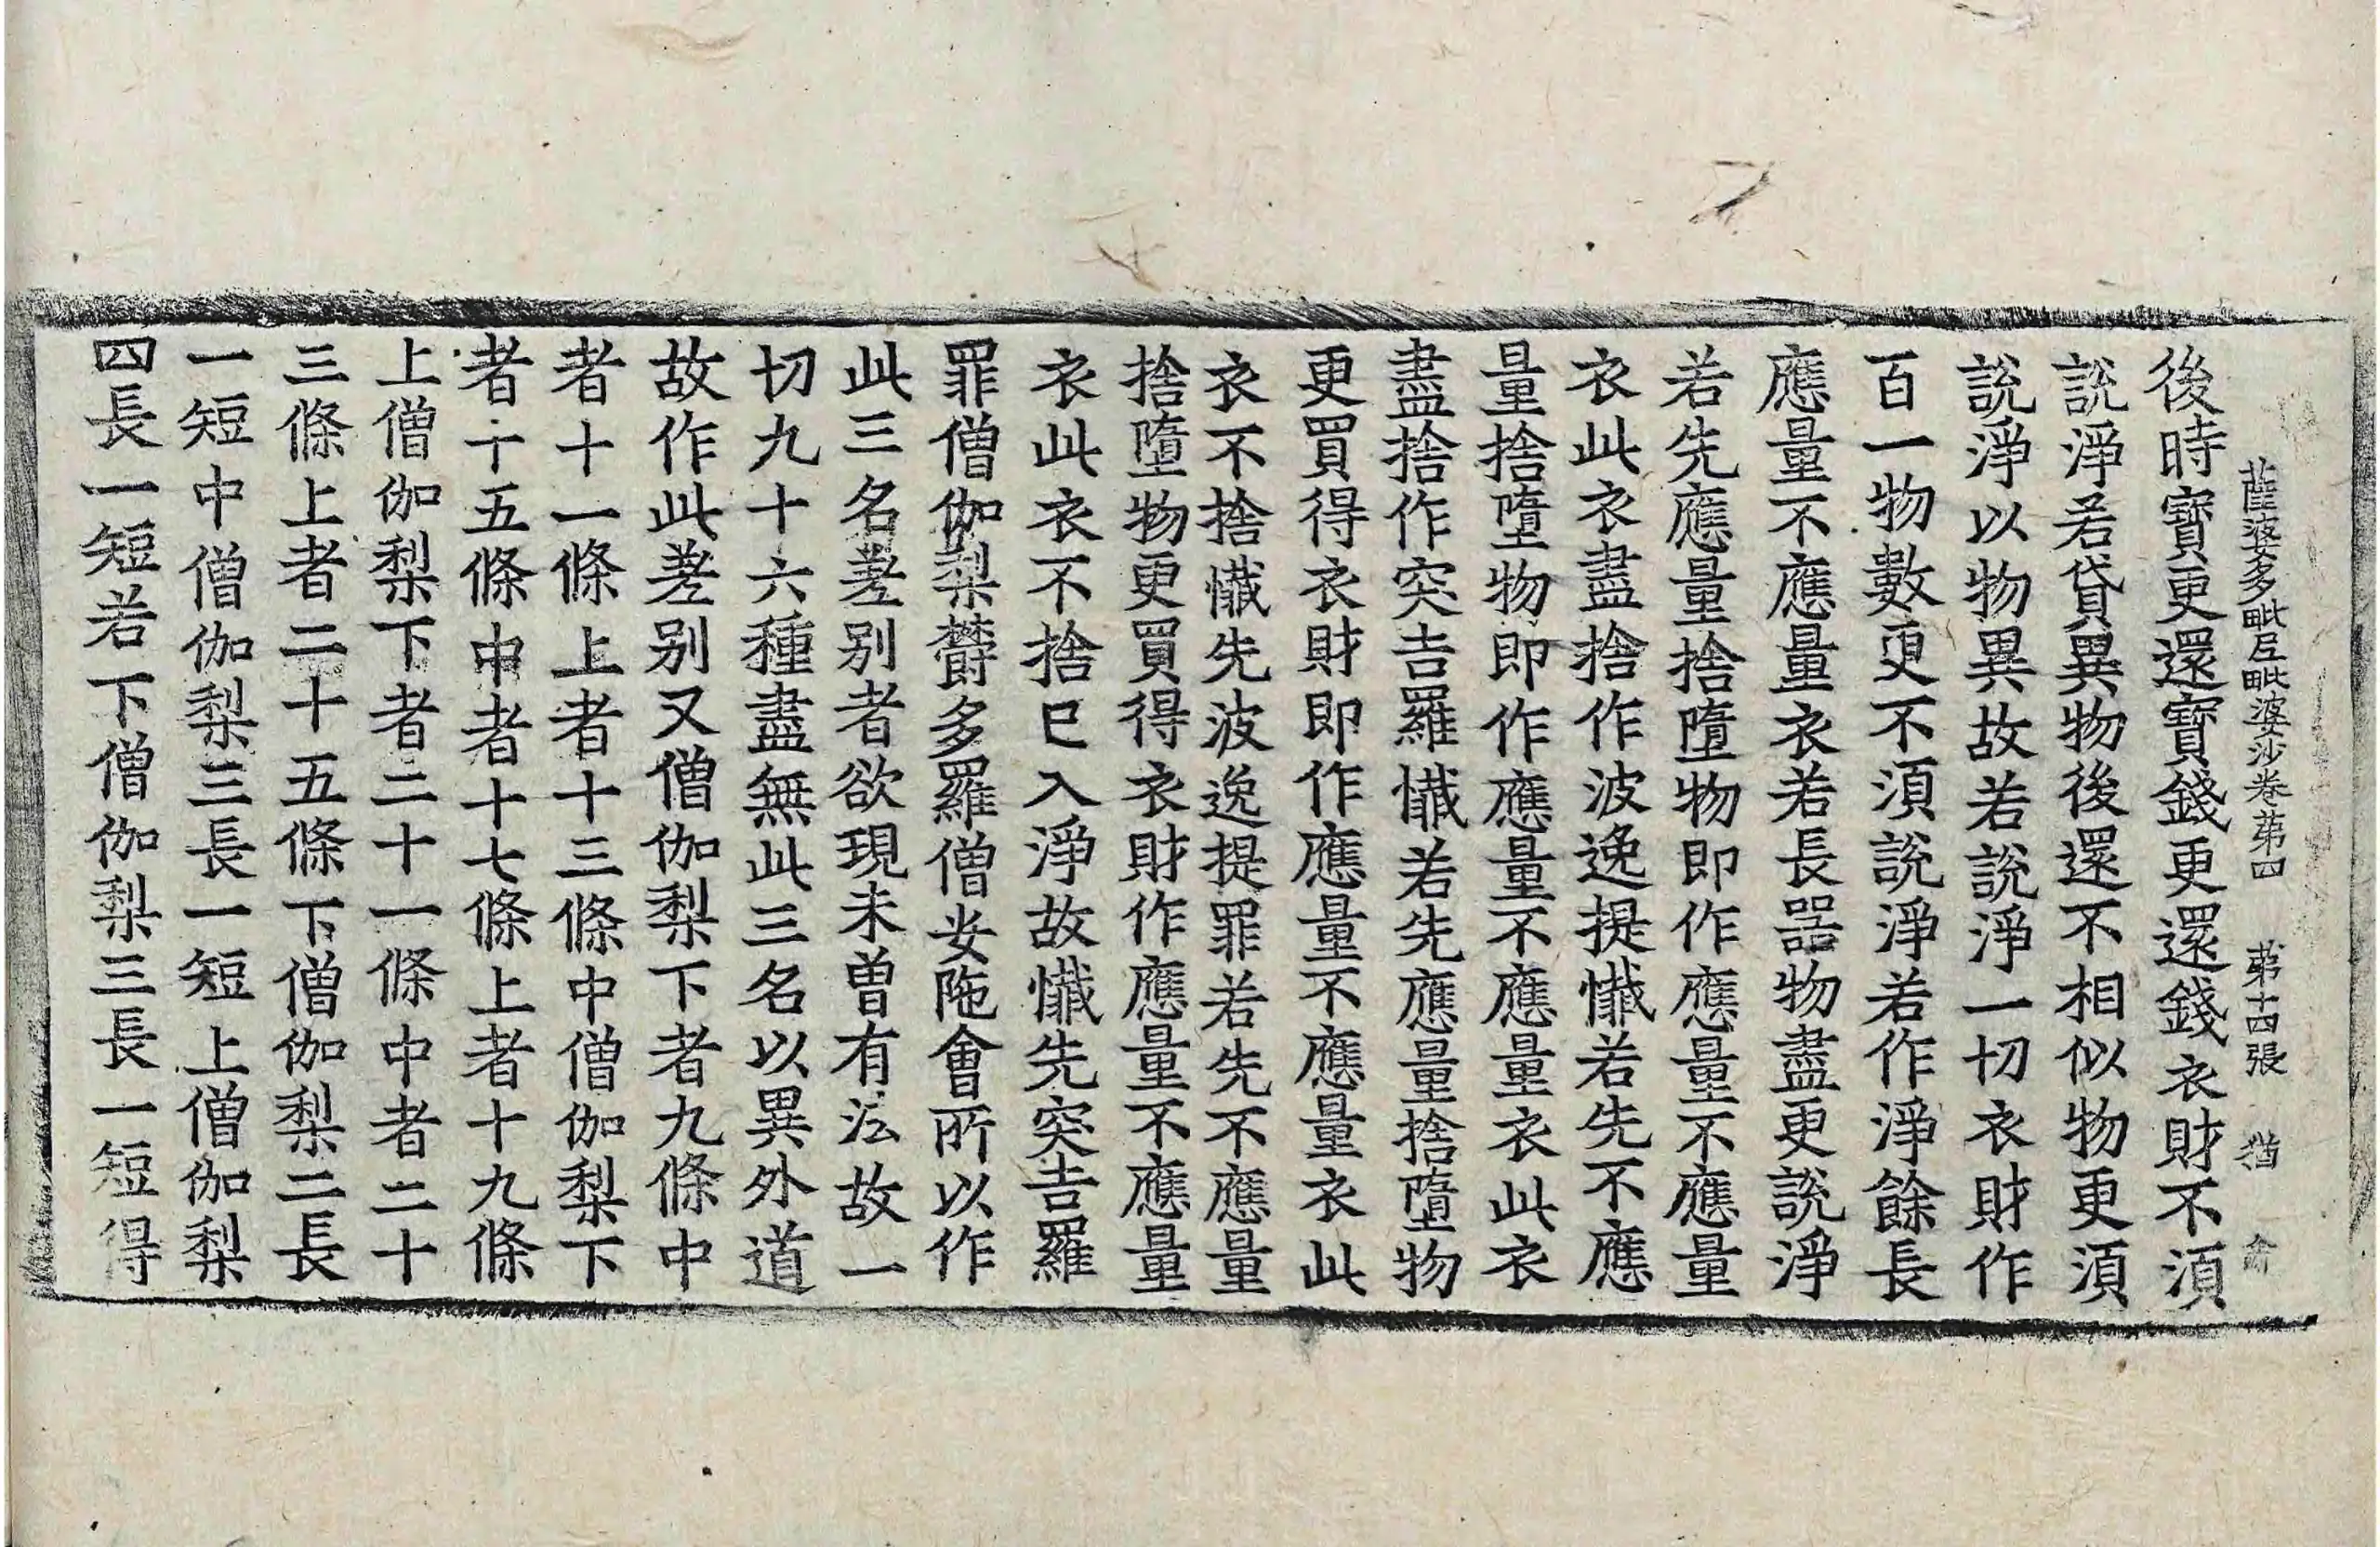 薩婆多毗尼毗婆沙卷苐四 苐十四張 猶
後時寳更還寳錢更還錢衣財不湏
說淨若貸異物後還不相似物更湏
說淨以物異故若說淨一切衣財作
百一物數更不湏說淨若作淨餘長
應量不應量衣若長器物盡更說淨
若先應量捨墮物即作應量不應量
衣此衣盡捨作波逸提懴若先不應
量捨墮物即作應量不應量衣此衣
盡捨作突吉羅懴若先應量捨墮物
更買得衣財即作應量不應量衣此
衣不捨懴先波逸提罪若先不應量
捨墮物更買得衣財作應量不應量
衣此衣不捨巳入淨故懴先突吉羅
罪僧伽梨欝多羅僧安陁會所以作
此三名差别者欲現未曽有法故一
切九十六種盡無此三名以異外道
故作此差别又僧伽梨下者九條中
者十一條上者十三條中僧伽梨下
者十五條中者十七條上者十九條
上僧伽梨下者二十一條中者二十
三條上者二十五條下僧伽梨二長
一短中僧伽梨三長一短上僧伽梨
四長一短若下僧伽梨三長一短得